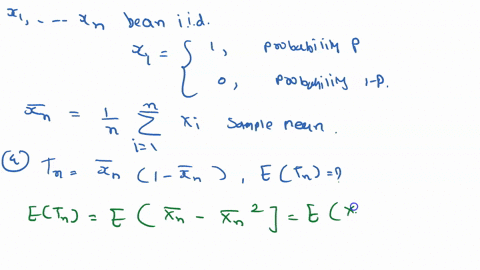 x₁, . -- xₙ bean i.i.d.
x₁ = { 1, probability p
0, probability 1-p.
x̄ₙ = 1/n ∑ᵢ₌₁ⁿ xᵢ sample mean.
(a) Tₙ = x̄ₙ (1 - x̄ₙ), E(Tₙ) = ?
E(Tₙ) = E ( x̄ₙ - x̄ₙ² ] = E ( x